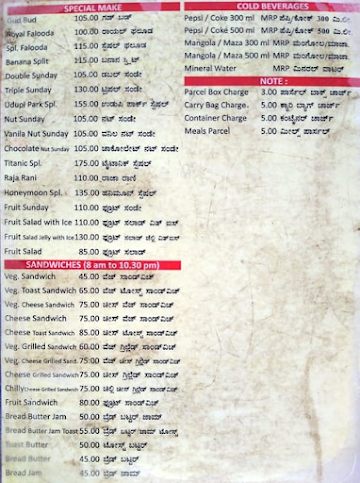 SPECIAL MAKE
Gud Bud 105.00 ಗಡ್ ಬಡ್
Royal Falooda 100.00 ರಾಯಲ್ ಫಲೂಡ
Spl. Falooda 115.00 ಸ್ಪೆಷಲ್ ಫಲೂಡ
Banana Split 115.00 ಬನಾನ ಸ್ಪ್ಲಿಟ್
Double Sunday 105.00 ಡಬಲ್ ಸಂಡೇ
Triple Sunday 130.00 ಟ್ರಿಪಲ್ ಸಂಡೇ
Udupi Park Spl. 155.00 ಉಡುಪಿ ಪಾರ್ಕ್ ಸ್ಪೆಷಲ್
Nut Sunday 105.00 ನಟ್ ಸಂಡೇ
Vanila Nut Sunday 105.00 ವನಿಲ ನಟ್ ಸಂಡೇ
Chocolate Nut Sunday 105.00 ಚಾಕೋಲೇಟ್ ನಟ್ ಸಂಡೇ
Titanic Spl. 175.00 ಟೈಟಾನಿಕ್ ಸ್ಪೆಷಲ್
Raja Rani 110.00 ರಾಜಾ ರಾಣಿ
Honeymoon Spl. 135.00 ಹನಿಮೂನ್ ಸ್ಪೆಷಲ್
Fruit Sunday 110.00 ಫ್ರೂಟ್ ಸಂಡೇ
Fruit Salad with Ice 110.00 ಫ್ರೂಟ್ ಸಲಾಡ್ ವಿತ್ ಐಸ್
Fruit Salad Jelly with Ice 130.00 ಫ್ರೂಟ್ ಸಲಾಡ್ ಜೆಲ್ಲಿ ವಿತ್ ಐಸ್
Fruit Salad 85.00 ಫ್ರೂಟ್ ಸಲಾಡ್
SANDWICHES (8 am to 10.30 pm)
Veg. Sandwich 45.00 ವೆಜ್ ಸಾಂಡ್‌ವಿಚ್
Veg. Toast Sandwich 65.00 ವೆಜ್ ಟೋಸ್ಟ್ ಸಾಂಡ್‌ವಿಚ್
Veg. Cheese Sandwich 75.00 ವೆಜ್ ಚೀಸ್ ಸಾಂಡ್‌ವಿಚ್
Cheese Sandwich 75.00 ಚೀಸ್ ಸಾಂಡ್‌ವಿಚ್
Cheese Toast Sandwich 85.00 ಚೀಸ್ ಟೋಸ್ಟ್ ಸಾಂಡ್‌ವಿಚ್
Veg. Grilled Sandwich 60.00 ವೆಜ್ ಗ್ರಿಲ್ಡ್ ಸಾಂಡ್‌ವಿಚ್
Veg. Cheese Grilled Sand. 75.00 ವೆಜ್ ಚೀಸ್ ಗ್ರಿಲ್ಡ್ ಸಾಂಡ್‌ವಿಚ್
Cheese Grilled Sandwich 75.00 ಚೀಸ್ ಗ್ರಿಲ್ಡ್ ಸಾಂಡ್‌ವಿಚ್
Chilly Cheese Grilled Sandwich 75.00 ಚಿಲ್ಲಿ ಚೀಸ್ ಗ್ರಿಲ್ಡ್ ಸಾಂಡ್‌ವಿಚ್
Fruit Sandwich 80.00 ಫ್ರೂಟ್ ಸಾಂಡ್‌ವಿಚ್
Bread Butter Jam 50.00 ಬ್ರೆಡ್ ಬಟ್ಟರ್ ಜಾಮ್
Bread Butter Jam Toast 55.00 ಬ್ರೆಡ್ ಬಟ್ಟರ್ ಜಾಮ್ ಟೋಸ್ಟ್
Toast Butter 50.00 ಟೋಸ್ಟ್ ಬಟ್ಟರ್
Bread Butter 45.00 ಬ್ರೆಡ್ ಬಟ್ಟರ್
Bread Jam 45.00 ಬ್ರೆಡ್ ಜಾಮ್
COLD BEVERAGES
Pepsi / Coke 300 ml MRP ಪೆಪ್ಸಿ/ಕೋಕ್ 300 ಮಿ.ಲೀ
Pepsi / Coke 500 ml MRP ಪೆಪ್ಸಿ/ಕೋಕ್ 500 ಮಿ.ಲೀ
Mangola / Maza 300 ml MRP ಮಂಗೋಲ/ಮಾಜಾ
Mangola / Maza 500 ml MRP ಮಂಗೋಲ/ಮಾಜಾ
Mineral Water MRP ಮಿನರಲ್ ವಾಟರ್
NOTE :
Parcel Box Charge 3.00 ಪಾರ್ಸೆಲ್ ಬಾಕ್ಸ್ ಚಾರ್ಜ್
Carry Bag Charge. 5.00 ಕ್ಯಾರಿ ಬ್ಯಾಗ್ ಚಾರ್ಜ್
Container Charge 5.00 ಕಂಟೈನರ್ ಚಾರ್ಜ್
Meals Parcel 5.00 ಮೀಲ್ಸ್ ಪಾರ್ಸಲ್